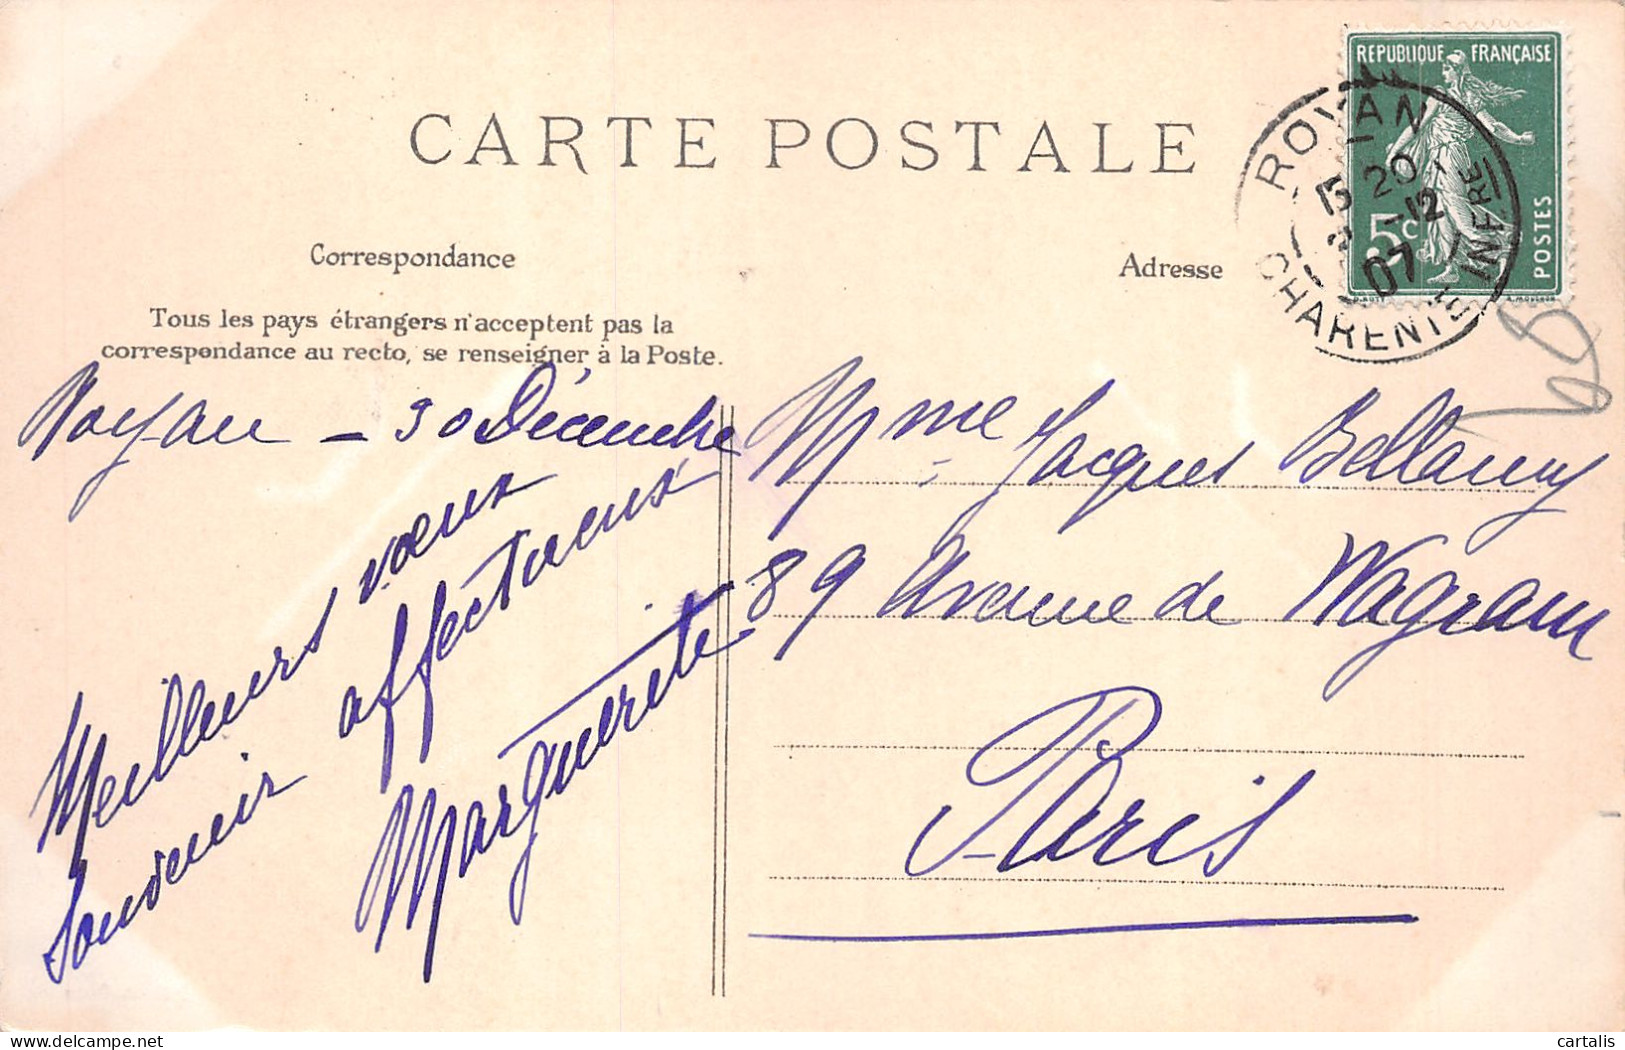 CARTE POSTALE
Correspondance
Adresse
Tous les pays étrangers n'acceptent pas la
correspondance au recto, se renseigner à la Poste.
REPUBLIQUE FRANÇAISE
5c
POSTES
ROYAN
15 20
-12
07
CHARENTE INFRE
68
Royan - 30 Décembre
Meilleurs vœux
souvenir affectueux
Marguerite
Mme Jacques Bellamy
89 Avenue de Wagram
Paris
cartalis